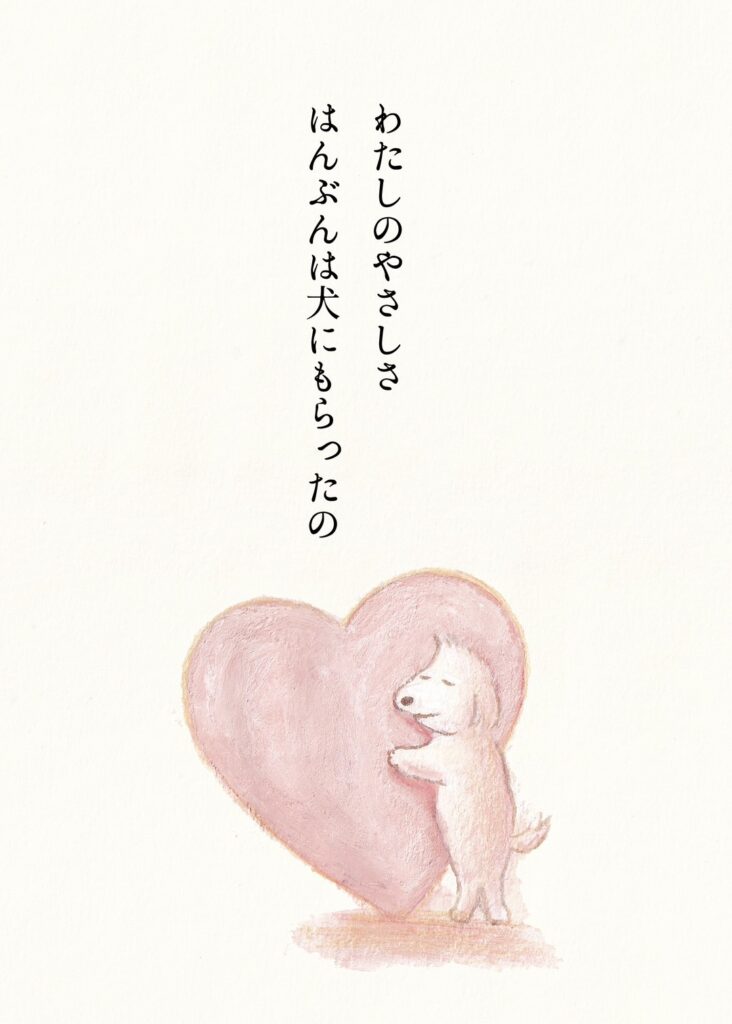 わたしのやさしさ
はんぶんは犬にもらったの